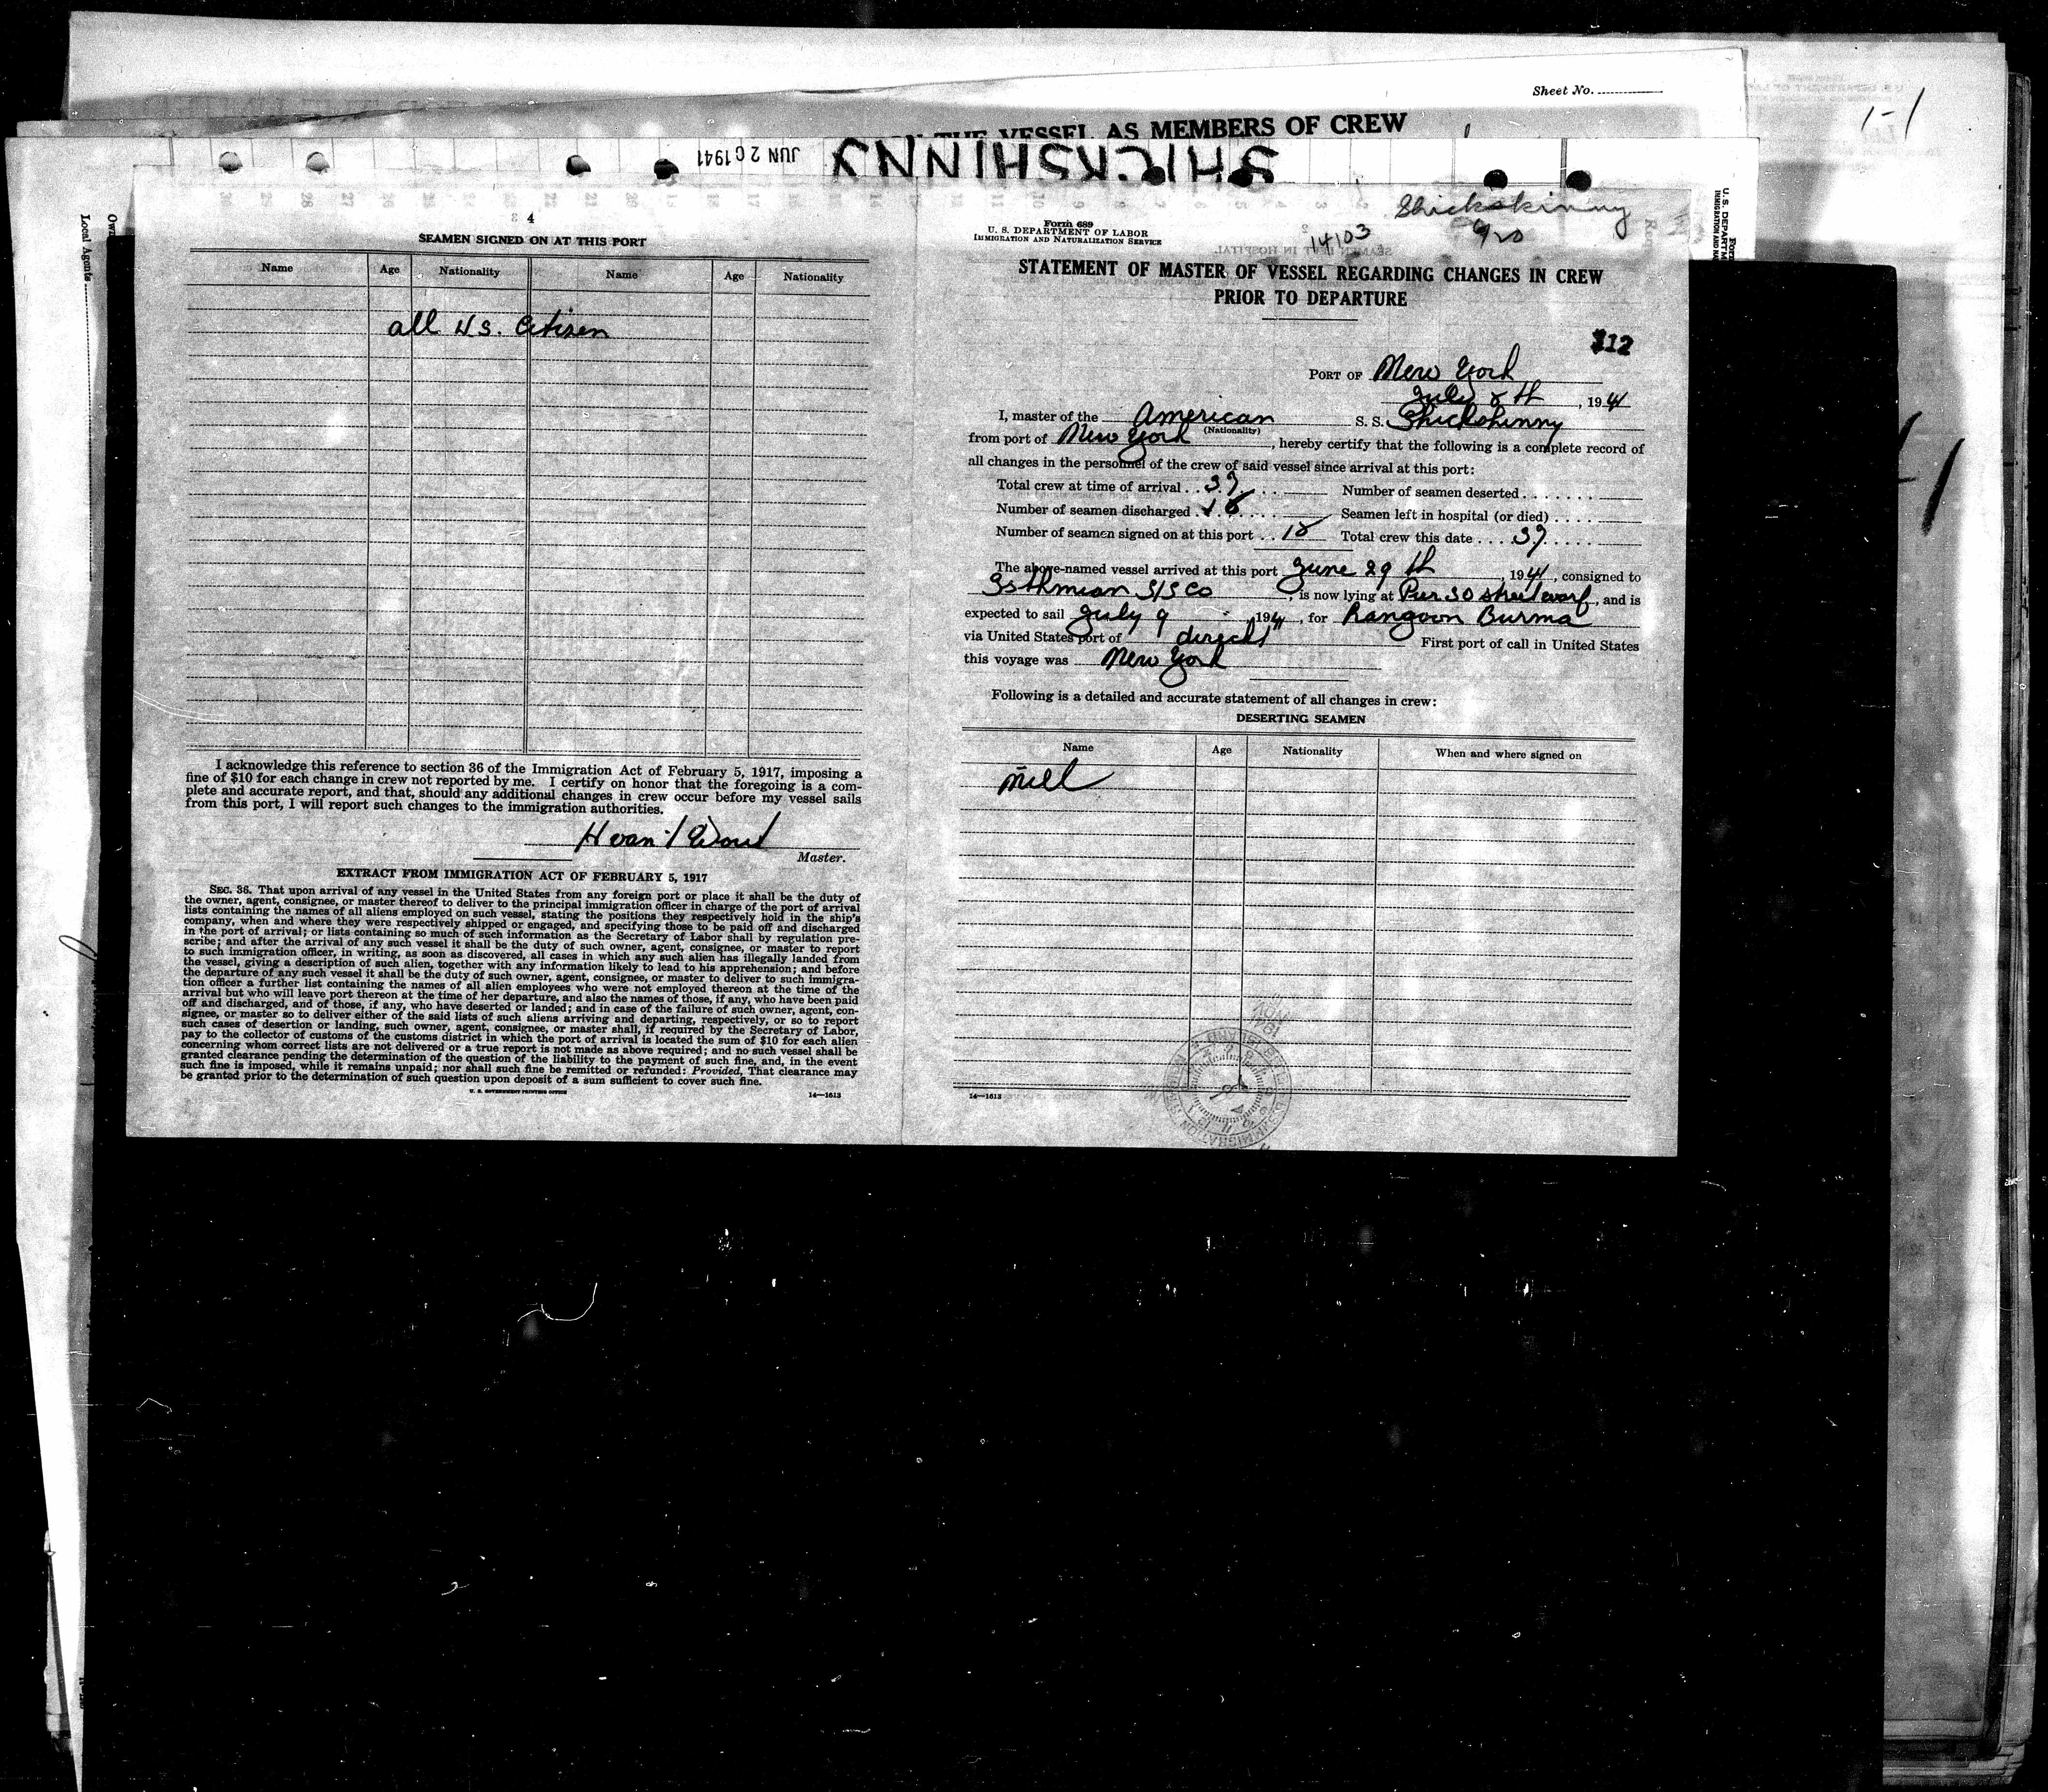 Sheet No.
THE VESSEL AS MEMBERS OF CREW
1-1
JUN 26 1941
SHICKSHINNY
Local Agents
4
SEAMEN SIGNED ON AT THIS PORT
Name Age Nationality Name Age Nationality
all U.S. Citizen
I acknowledge this reference to section 36 of the Immigration Act of February 5, 1917, imposing a
fine of $10 for each change in crew not reported by me. I certify on honor that the foregoing is a com-
plete and accurate report, and that, should any additional changes in crew occur before my vessel sails
from this port, I will report such changes to the immigration authorities.
Master.
EXTRACT FROM IMMIGRATION ACT OF FEBRUARY 5, 1917
SEC. 36. That upon arrival of any vessel in the United States from any foreign port or place it shall be the duty of
the owner, agent, consignee, or master thereof to deliver to the principal immigration officer in charge of the port of arrival
lists containing the names of all aliens employed on such vessel, stating the positions they respectively hold in the ship's
company, when and where they were respectively shipped or engaged, and specifying those to be paid off and discharged
in the port of arrival; or lists containing so much of such information as the Secretary of Labor shall by regulation pre-
scribe; and after the arrival of any such vessel it shall be the duty of such owner, agent, consignee, or master to report
to such immigration officer, in writing, as soon as discovered, all cases in which any such alien has illegally landed from
the vessel, giving a description of such alien, together with any information likely to lead to his apprehension; and before
the departure of any such vessel it shall be the duty of such owner, agent, consignee, or master to deliver to such immigra-
tion officer a further list containing the names of all alien employees who were not employed thereon at the time of the
arrival but who will leave port thereon at the time of her departure, and also the names of those, if any, who have been paid
off and discharged, and of those, if any, who have deserted or landed; and in case of the failure of such owner, agent, con-
signee, or master so to deliver either of the said lists of such aliens arriving and departing, respectively, or so to report
such cases of desertion or landing, such owner, agent, consignee, or master shall, if required by the Secretary of Labor,
pay to the collector of customs of the customs district in which the port of arrival is located the sum of $10 for each alien
concerning whom correct lists are not delivered or a true report is not made as above required; and no such vessel shall be
granted clearance pending the determination of the question of the liability to the payment of such fine, and, in the event
such fine is imposed, while it remains unpaid; nor shall such fine be remitted or refunded: Provided, That clearance may
be granted prior to the determination of such question upon deposit of a sum sufficient to cover such fine.
U. S. GOVERNMENT PRINTING OFFICE 14—1613
Shickshinny
920
14103
Form 689
U. S. DEPARTMENT OF LABOR
IMMIGRATION AND NATURALIZATION SERVICE
STATEMENT OF MASTER OF VESSEL REGARDING CHANGES IN CREW
PRIOR TO DEPARTURE
312
PORT OF New York
July 8th, 1941
I, master of the American S. S. Shickshinny
(Nationality)
from port of New York, hereby certify that the following is a complete record of
all changes in the personnel of the crew of said vessel since arrival at this port:
Total crew at time of arrival 37 Number of seamen deserted
Number of seamen discharged 18 Seamen left in hospital (or died)
Number of seamen signed on at this port 18 Total crew this date 37
The above-named vessel arrived at this port June 29th, 1941, consigned to
Isthmian S/S Co, is now lying at Pier 30, and is
expected to sail July 9, 1941, for Rangoon Burma
via United States port of direct First port of call in United States
this voyage was New York
Following is a detailed and accurate statement of all changes in crew:
DESERTING SEAMEN
Name Age Nationality When and where signed on
nill
14—1613